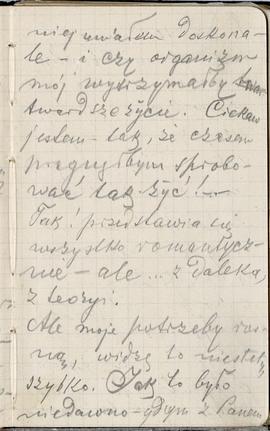 niej uważam Doskona-
le - i czy organizm
mój wytrzymałby
twardsze życie. Ciekaw
jestem - tak, że czasem
pragnąłbym spróbo-
wać tak żyć! -
Tak! przedstawia się
wszystko romantycz-
nie - ale ... z daleka,
z teorji.
Ale moje potrzeby ros-
ną, widzę to niestety
szybko. Jak to było
niedawno - gdym z Panem